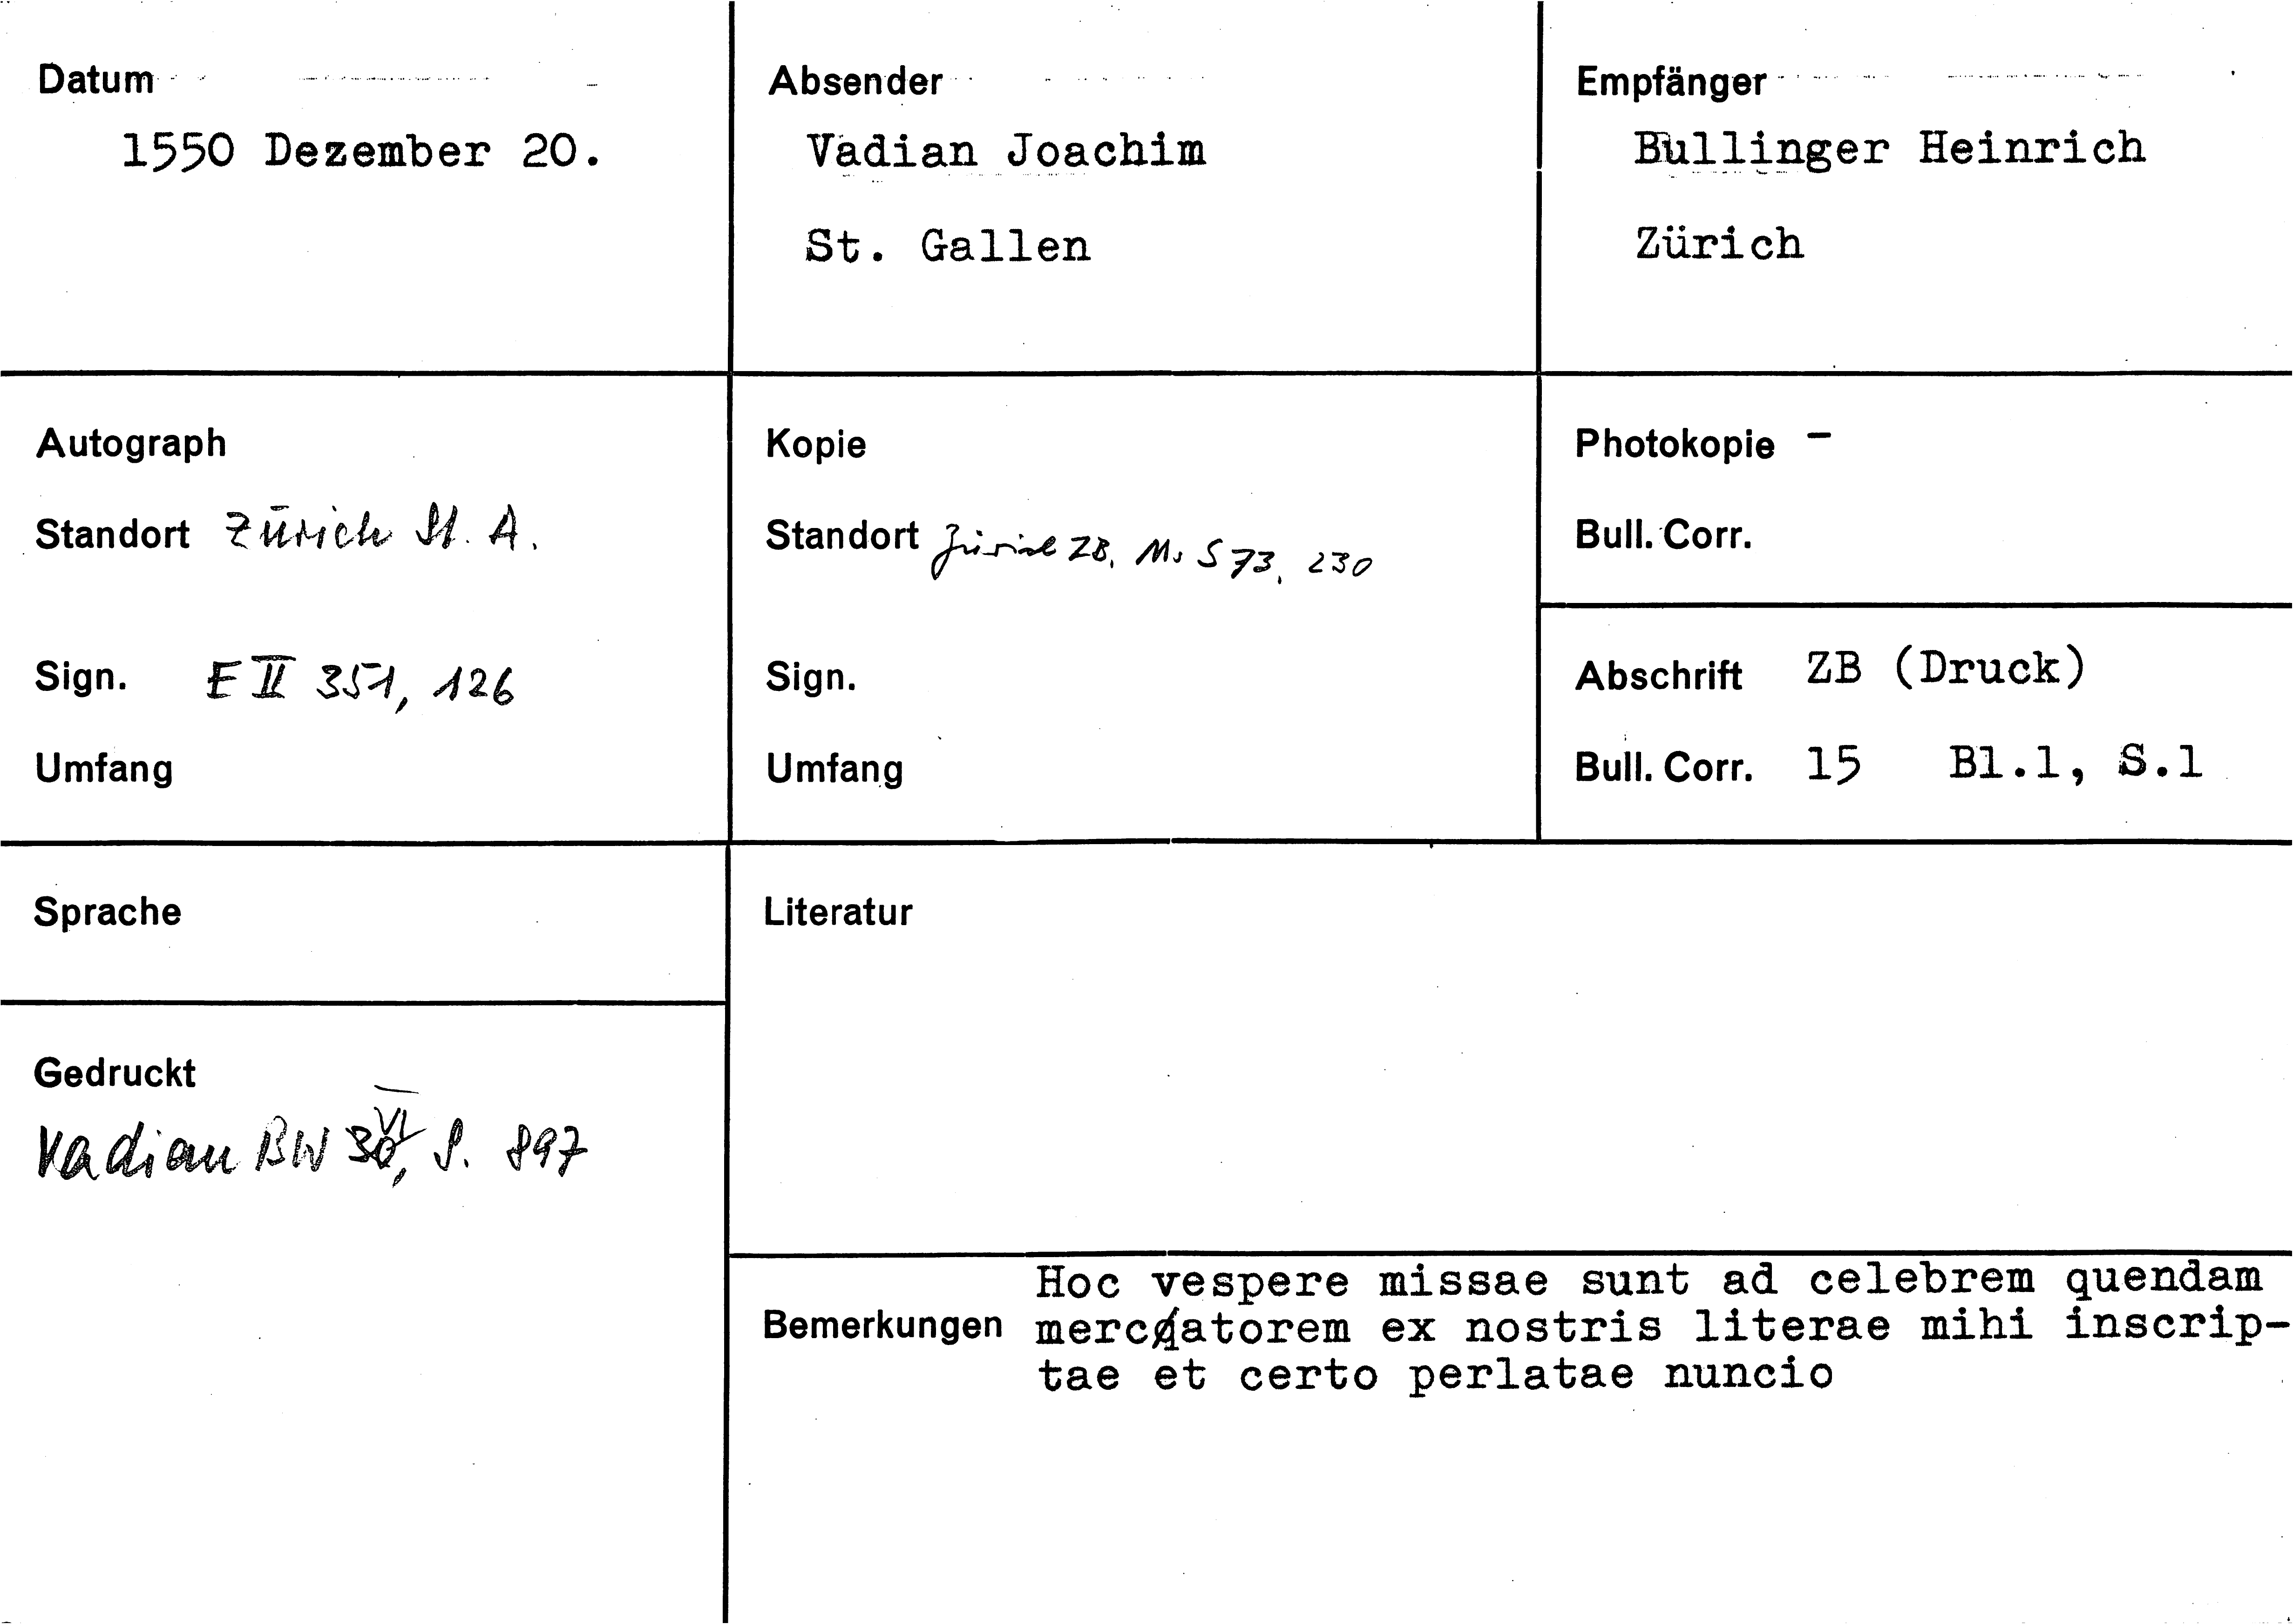 Datum
1550 Dezember 20.
Absender
Vadian Joachim
St. Gallen
Empfänger
Bullinger Heinrich
Zürich
Autograph
Standort Zürich St. A.
Sign. E II 351, 126
Umfang
Kopie
Standort Zürich ZB, Ms S 73, 230
Sign.
Umfang
Photokopie -
Bull. Corr.
Abschrift ZB (Druck)
Bull. Corr. 15 Bl.1, S.1
Sprache
Literatur
Gedruckt
Vadian BW VI, S. 897
Bemerkungen
Hoc vespere missae sunt ad celebrem quendam
mercatorem ex nostris literae mihi inscrip-
tae et certo perlatae nuncio